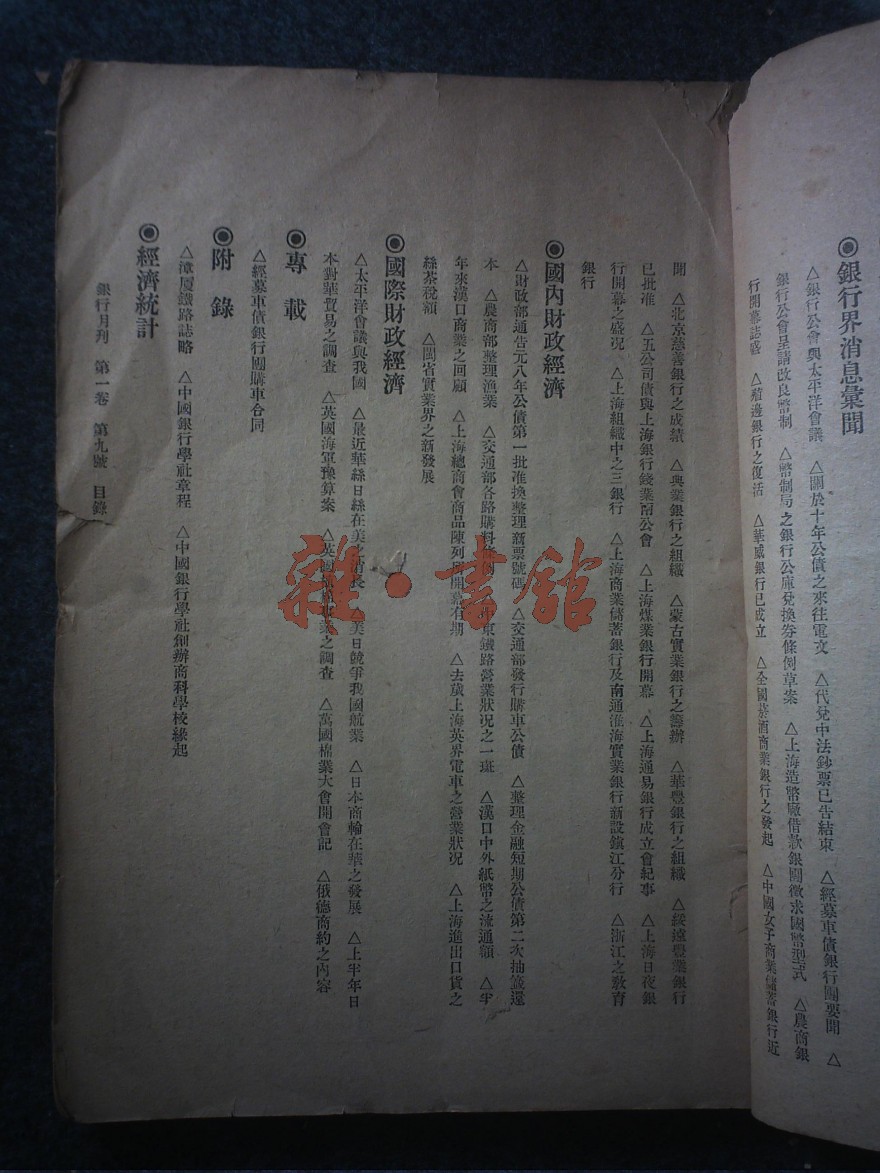 ◉銀行界消息彙聞
△銀行公會與太平洋會議　△關於十年公債之來往電文　△代兌中法鈔票已告結束　△經募車債銀行團要聞　△
銀行公會呈請改良幣制　△幣制局之銀行公庫兌換券條例草案　△上海造幣廠借款銀團徵求國幣型式　△農商銀
行開幕誌盛　△勸邊銀行之復活　△華威銀行已成立　△全國菸酒商業銀行之發起　△中國女子商業儲蓄銀行近
聞　△北京慈善銀行之成績　△典業銀行之組織　△蒙古實業銀行之籌辦　△華豐銀行之組織　△綏遠豐業銀行
已批准　△五公司債與上海銀錢業兩公會　△上海煤業銀行開幕　△上海通易銀行成立會紀事　△上海日夜銀
行開幕之盛況　△上海組織中之三銀行　△上海商業儲蓄銀行及南通淮海實業銀行新設鎮江分行　△浙江之敎育
銀行
◉國內財政經濟
△財政部通告元八年公債第一批准換整理新票號碼　△交通部發行購車公債　△整理金融短期公債第二次抽籤還
本　△農商部整理漁業　△交通部各路購料　東鐵路營業狀况之一斑　△漢口中外紙幣之流通額　△半
年來漢口商業之回顧　△上海總商會商品陳列所開幕有期　△去歲上海英界電車之營業狀况　△上海進出口貨之
絲茶稅額　△閩省實業界之新發展
◉國際財政經濟
△太平洋會議與我國　△最近華絲日絲在美之消長　△美日競爭我國航業　△日本商輪在華之發展　△上半年日
本對華貿易之調查　△英國海軍豫算案　△英國　業之調查　△萬國棉業大會開會記　△俄德商約之內容
◉專載
△經募車債銀行團購車合同
◉附錄
△漳厦鐵路誌略　△中國銀行學社章程　△中國銀行學社創辦商科學校緣起
◉經濟統計
銀行月刊　第一卷　第九號　目錄
雜·書館